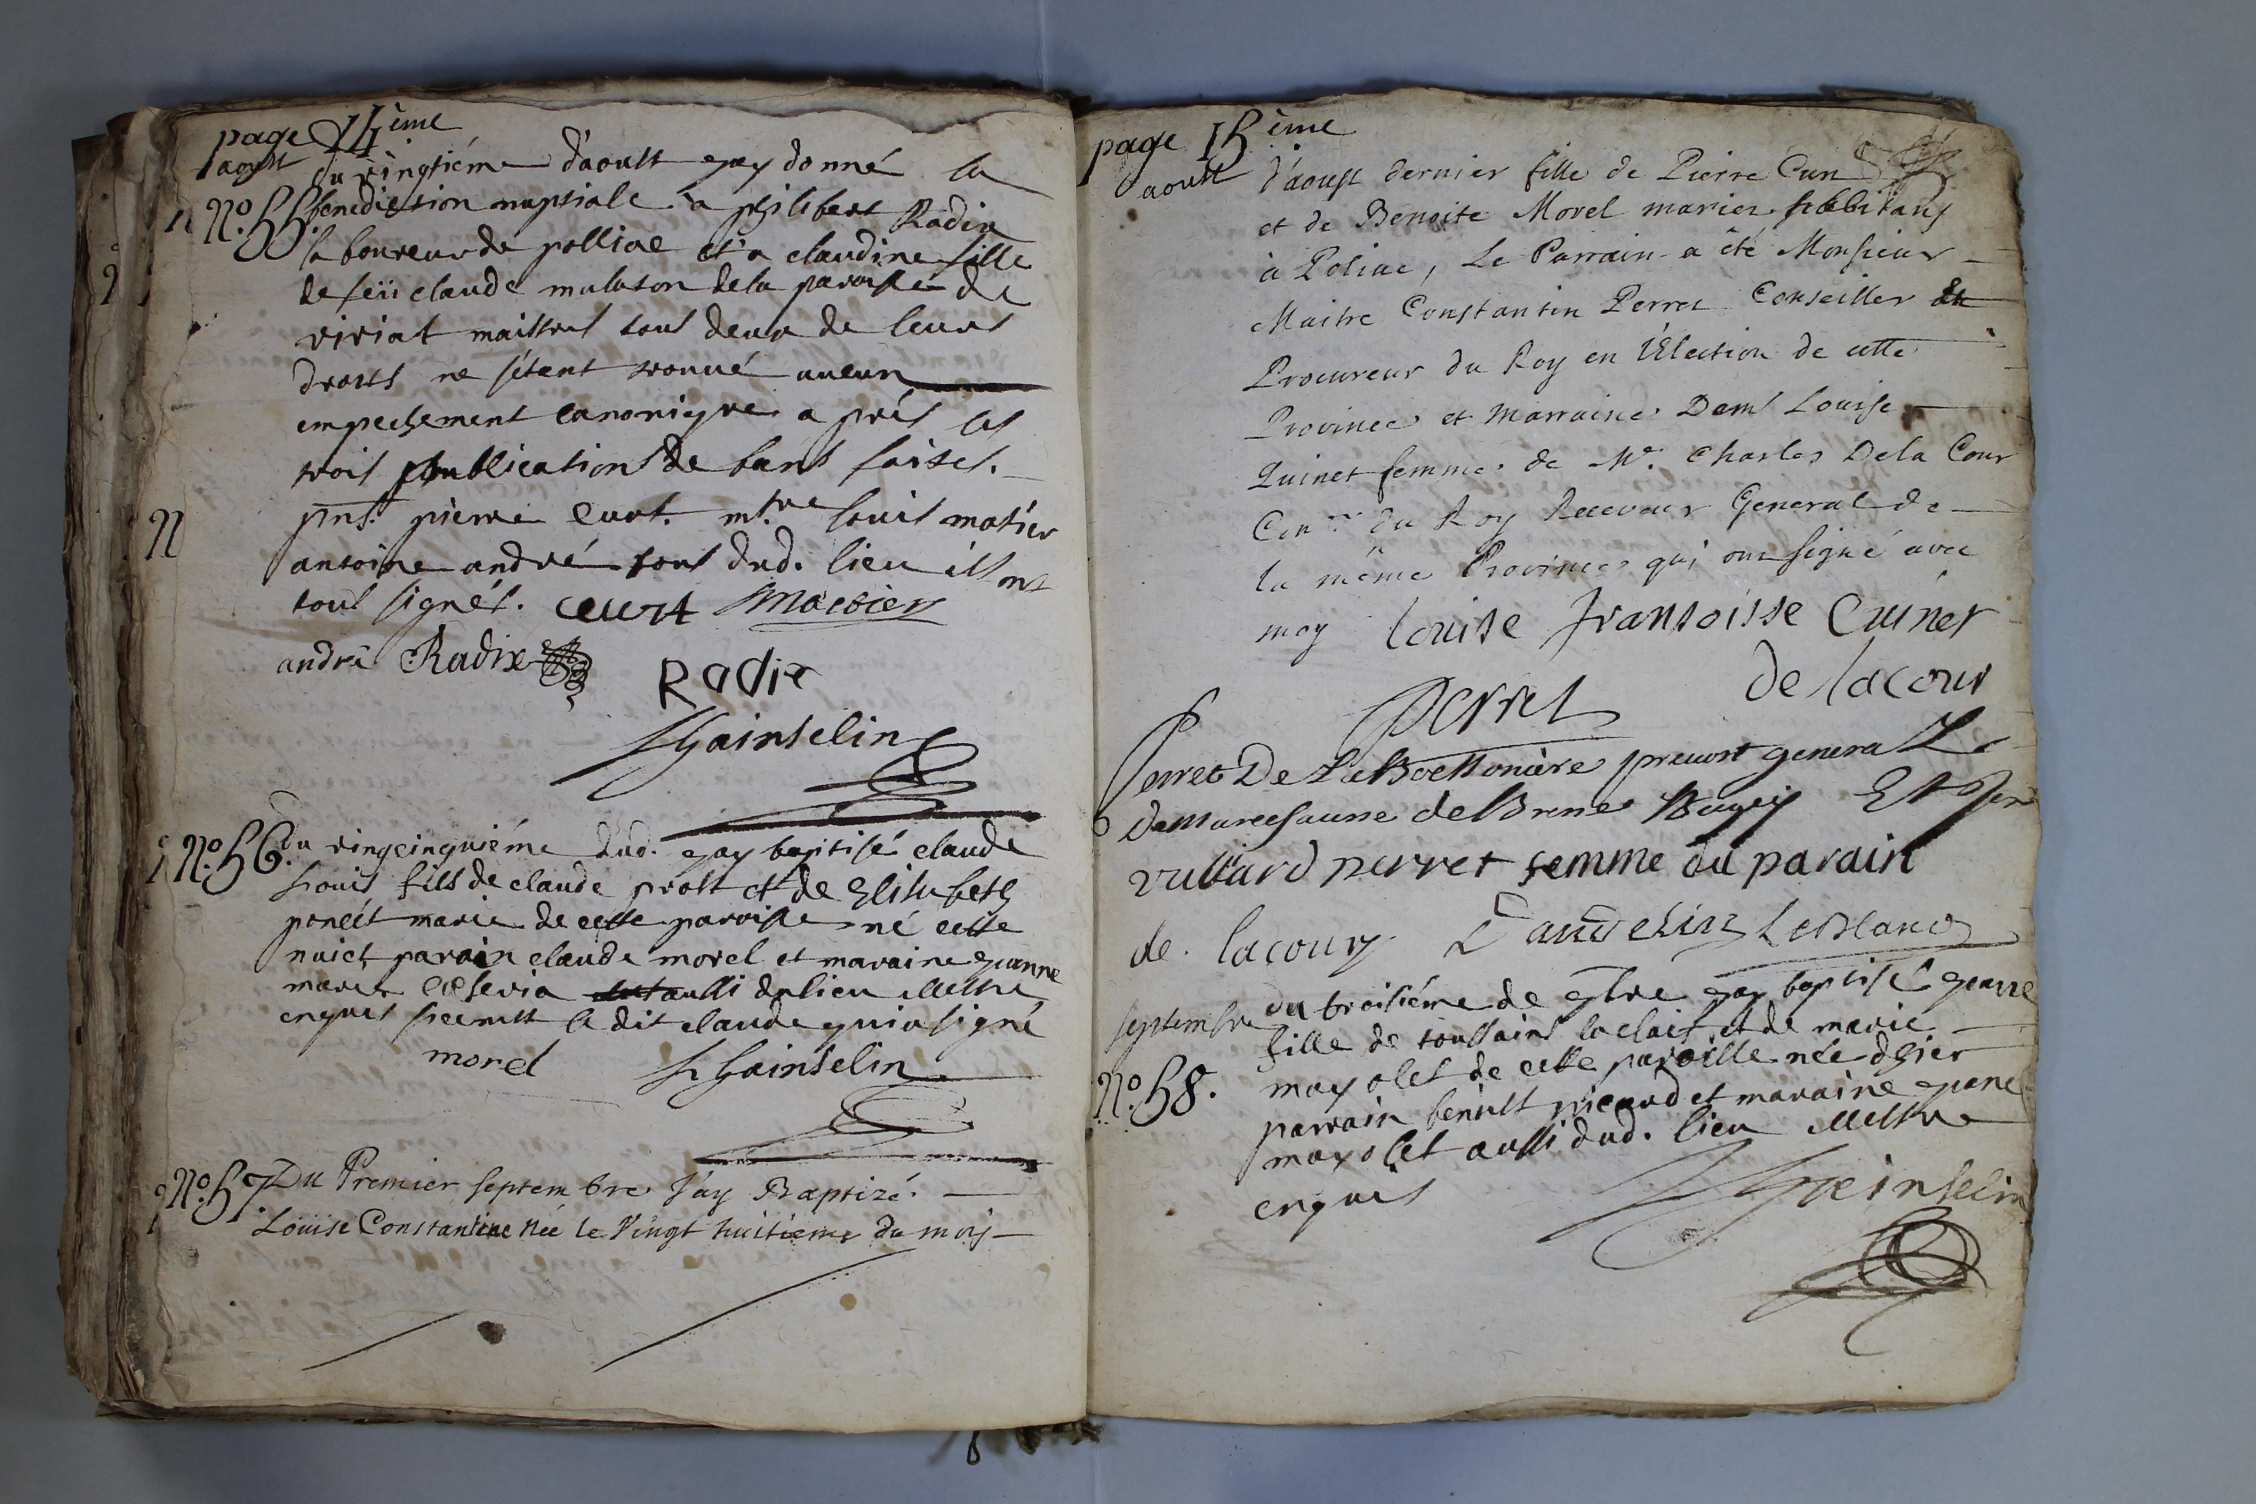 page 14ème
aoust
du vingtiéme d'aoust gay donné la
No. 55. benediction nuptiale a philibert Radix
laboureur de polliac et a claudine fille
de feü claude mulaton de la paroisse de
viriat maistres tous deux de leurs
droits ne s'étant trouvé aucun
empechement canonique aprés les
trois publications de bans faites.
pnts. pierre curt. mtre louis matier
antoine andré tous dud. lieu ils ont
tous signés. ceurt Mactier
andré Radix
Radix
Hainselin
No. 56. du vingcinquiéme dud. gay baptisé claude
Louis fils de claude prost et de Elisabeth
poncet marié de cette paroisse né cette
nuict parain claude morel et maraine gianne
marie aussi du lieu illettre
enquis fermst le dit claude qui a signé
morel Hainselin
No. 57. Du Premier septembre J'ay Baptizé
Louise Constantine Née le Vingt huitieme du mois
page 15ème
aoust
d'aoust dernier fille de Pierre Cun
et de Benoite Morel mariez habitans
à Poliac, Le Parrain a été Monsieur
Maitre Constantin Perret Conseiller
Procureur du Roy en l'Election de cette
Province et Marraine Dame Louise
Quinet femme de Mr. Charles Dela Cour
Conr du Roy Receveur General de
la même Province qui ont signé avec
moy Louise fransoisse Cuinet
Perret de lacour
perret De La Boessonière prevost general
De Marechausse de Bresse Bugey Et Gex
vuillard perret femme du parain
de lacour Dandelin LeBlanc
septembre
du troisiéme de 7bre gay baptisé gianne
fille de toussaint laclais et de marie
No. 58. mayolet de cette paroisse née d'hier
parrain benoist picard et maraine giane
mayolet aussi dud. lieu illettre
enquis Hainselin